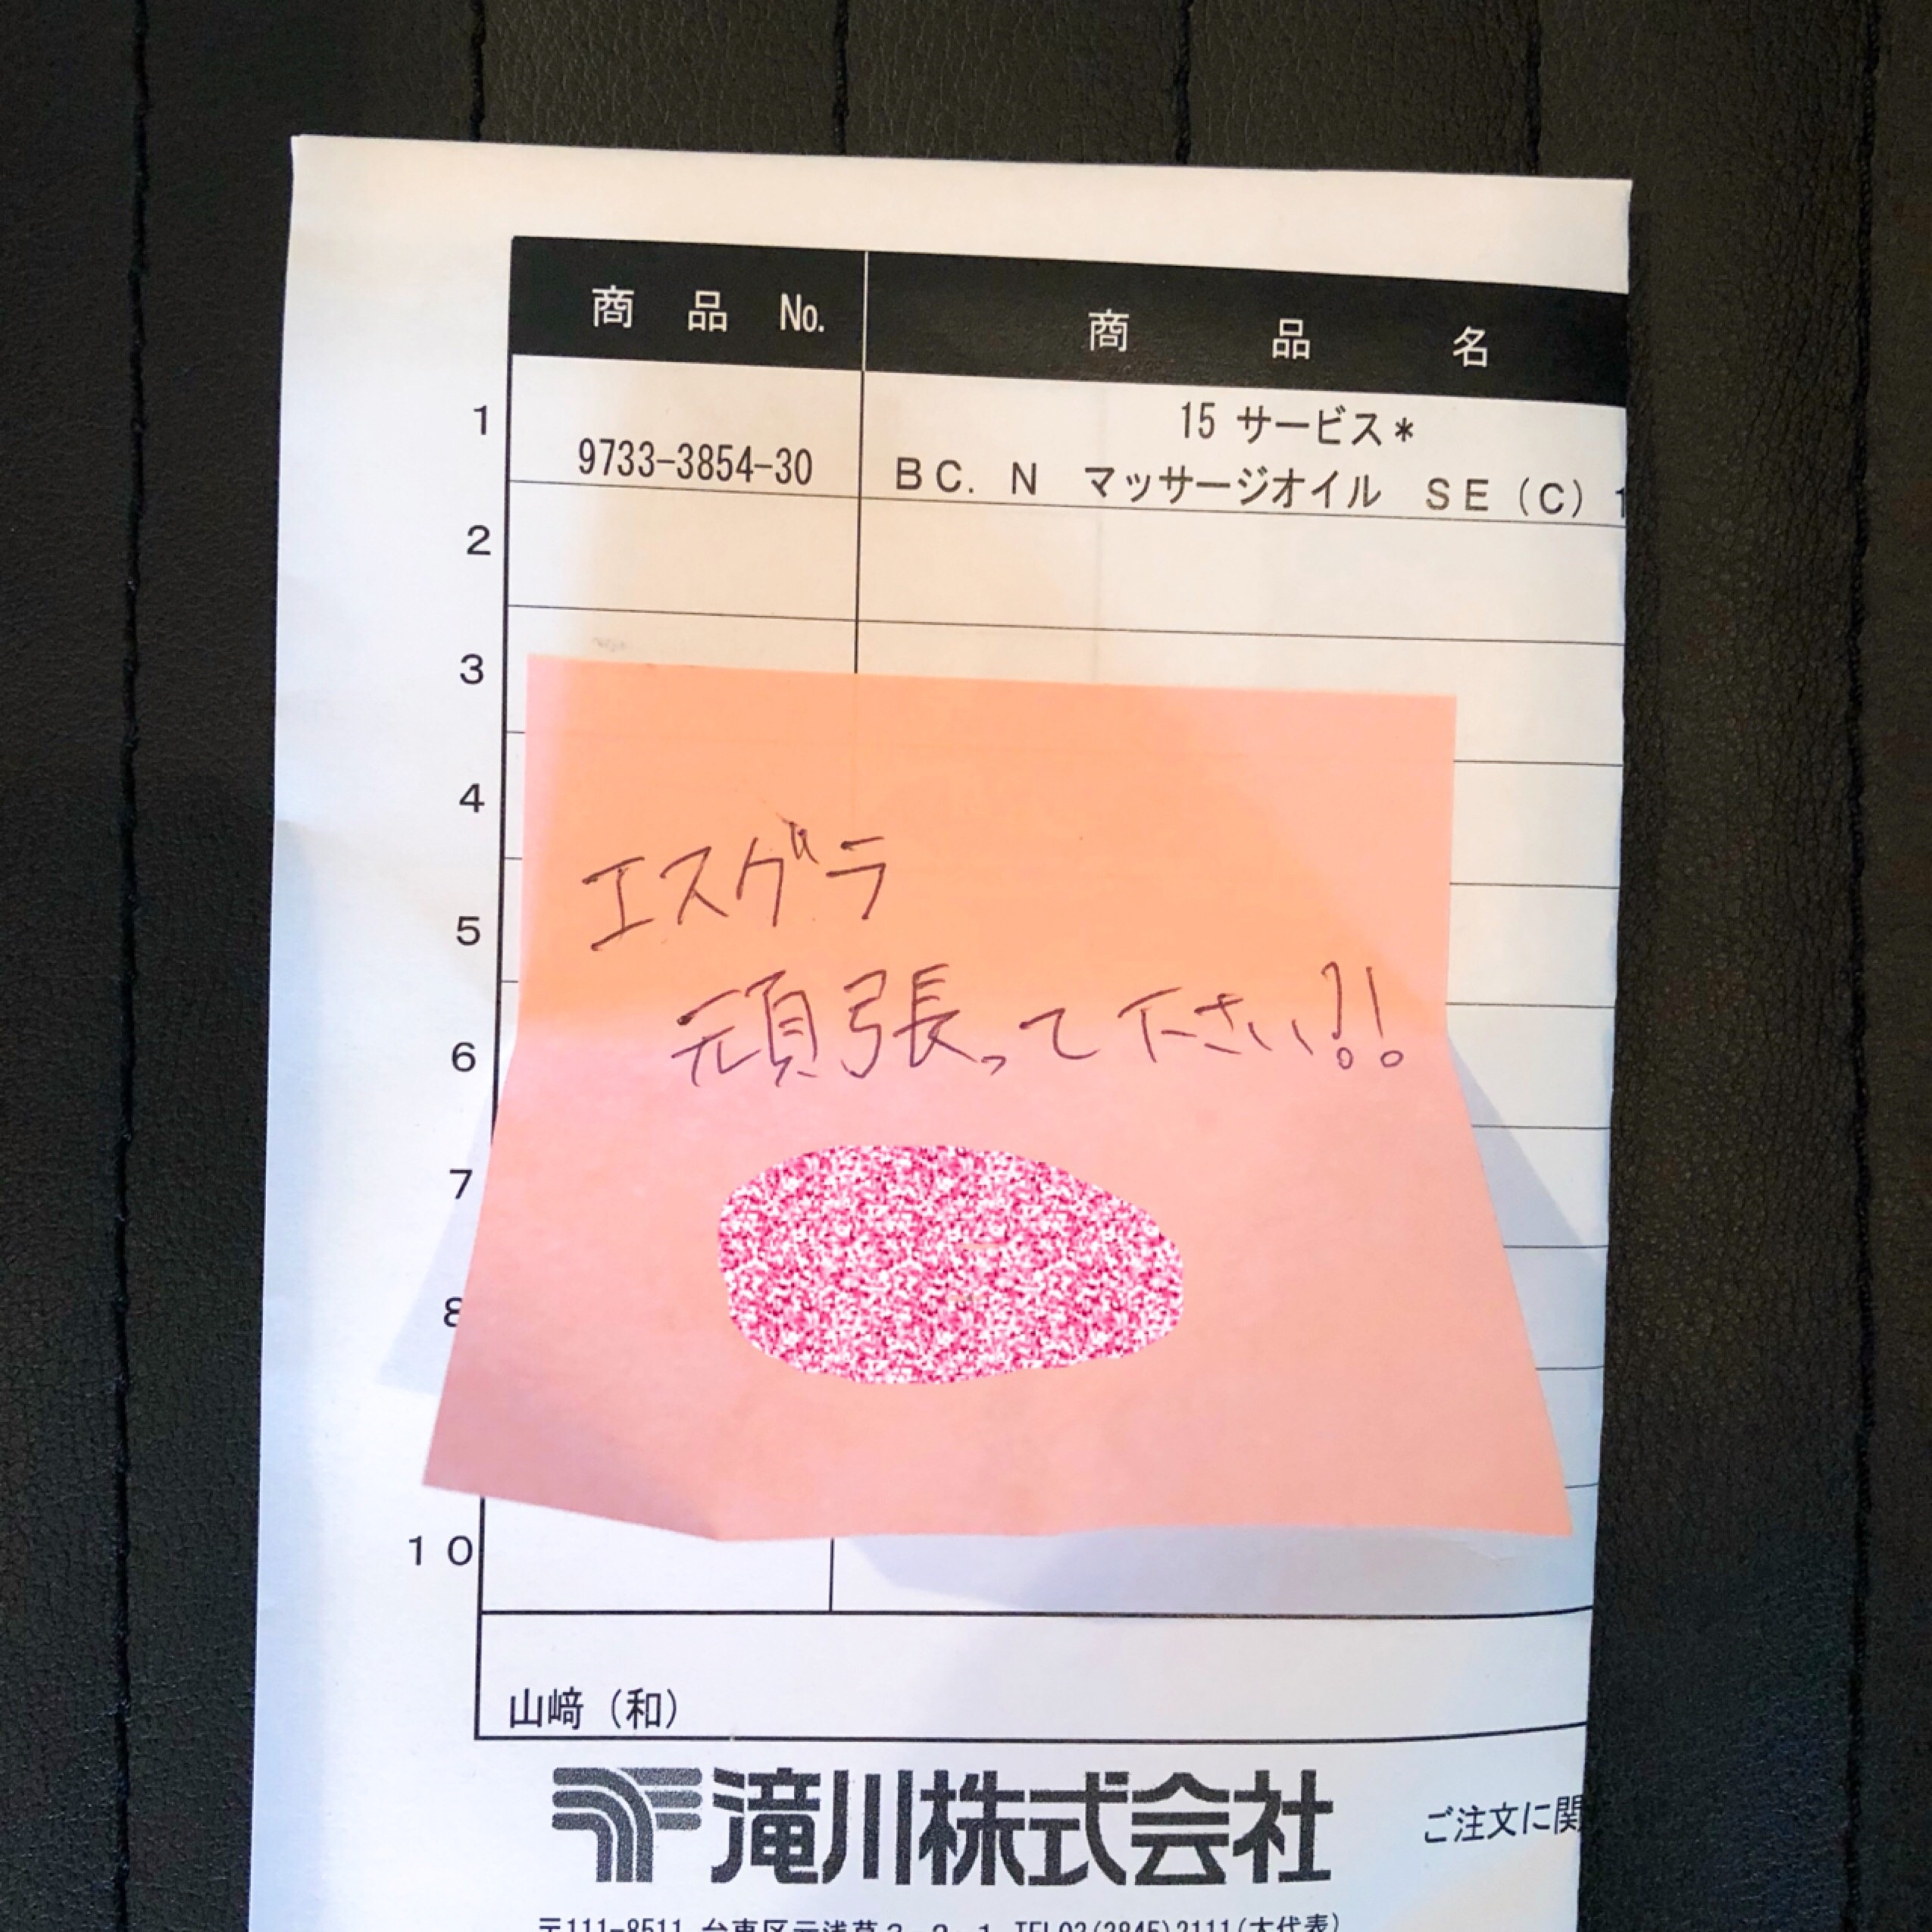 商品No. 商品名
1 15 サービス*
9733-3854-30 BC.N マッサージオイル SE(C)
2
3
4
エスグラ
5
頑張って下さい!!
6
7
8
10
山﨑(和)
滝川株式会社
ご注文に関
〒111-8511 台東区元浅草3-2-1 TEL03(3845)2111(大代表)